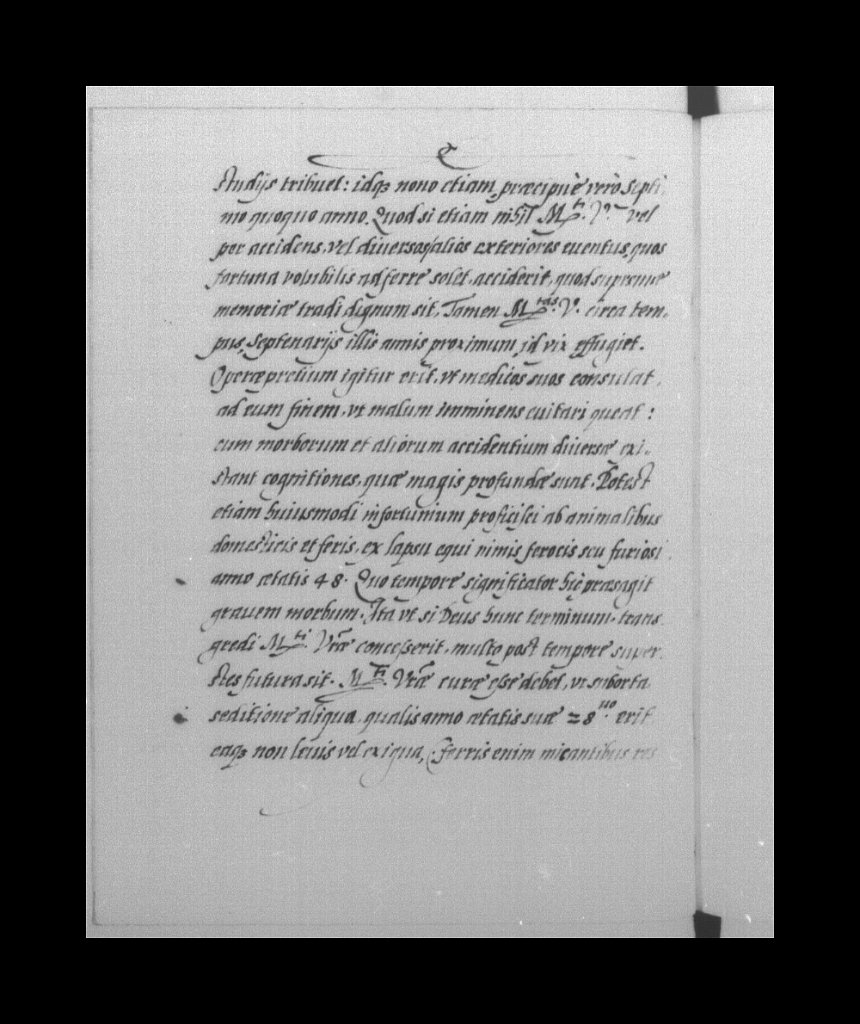 studijs tribuet: idqꝫ nono etiam, præcipuè verò septi
mo quoquo anno. Quod si etiam nihil M.ti V.ræ vel
per accidens, vel diuersos alios exteriores euentus, quos
fortuna volubilis adferre solet, acciderit, quod supreme
memoriæ tradi dignum sit, Tamen M.tas V. circa tem-
pus, Septenarijs illis annis proximum, id vix effugiet.
Operæpretium igitur erit, vt medicos suos consulat,
ad eum finem, vt malum imminens euitari queat:
cum morborum et aliorum accidentium diuersæ exi-
stant cognitiones, quæ magis profundæ sunt. Potest
etiam huiusmodi infortunium proficisci ab animalibus
domesticis et feris, ex lapsu equi nimis ferocis seu furiosi
anno ætatis 48. Quo tempore significator hic præsagit
grauem morbum. Ita vt si Deus hunc terminum trans
gredi M.ti Vræ concesserit, multo post tempore super
stes futura sit. M.ti Vræ curæ esse debet, vt suborta
seditione aliqua, qualis anno ætatis suæ 28.uo erit
eaqꝫ non leuis vel exigua, ferris enim micantibus res